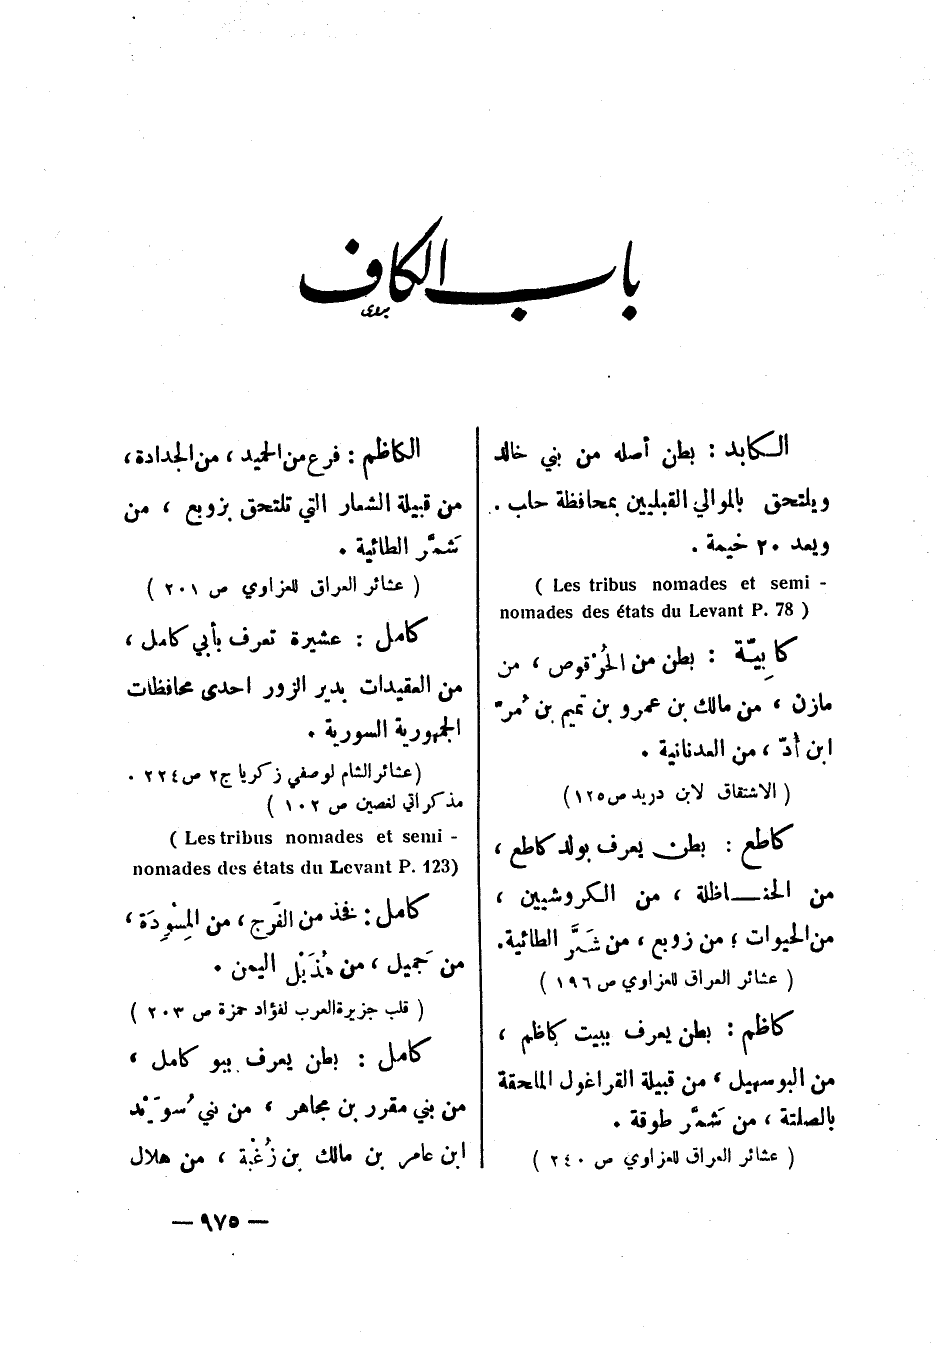 باب الكاف
الكابد : بطن أصله من بني خالد
ويلتحق بالموالي القبليين بمحافظة حلب .
ويعد ٢٠ خيمة .
( Les tribus nomades et semi -
nomades des états du Levant P. 78 )
كابِيَّة : بطن من الحُرْقوص ، من
مازن ، من مالك بن عمرو بن تميم بن مُرّ
ابن أُدّ ، من العدنانية .
( الاشتقاق لابن دريد ص ١٢٥ )
كاطع : بطن يعرف بولد كاطع ،
من الحنـاظلة ، من الكروشيين ،
من الحيوات ، من زوبع ، من شَمَّر الطائية .
( عشائر العراق للعزاوي ص ١٩٦ )
كاظم : بطن يعرف ببيت كاظم ،
من البوسهيل ، من قبيلة القراغول الملحقة
بالصلتة ، من شَمَّر طوقة .
( عشائر العراق للعزاوي ص ٢٤٠ )
الكاظم : فرع من الحميد ، من الجدادة ،
من قبيلة الشعار التي تلتحق بزوبع ، من
شَمَّر الطائية .
( عشائر العراق للعزاوي ص ٢٠١ )
كامل : عشيرة تعرف بأبي كامل ،
من العقيدات بدير الزور احدى محافظات
الجمهورية السورية .
( عشائر الشام لوصفي زكريا ج٢ ص ٢٢٤ .
مذكراتي لغصين ص ١٠٢ )
( Les tribus nomades et semi -
nomades des états du Levant P. 123)
كامل : فخذ من الفَرج ، من المِسْوِدَة ،
من جَميل ، من هُذَيْل اليمن .
( قلب جزيرة العرب لفؤاد حمزة ص ٢٠٣ )
كامل : بطن يعرف ببو كامل ،
من بني مقرر بن مجاهر ، من بني سُوَيْد
ابن عامر بن مالك بن زُغْبة ، من هلال
— ٩٧٥ —